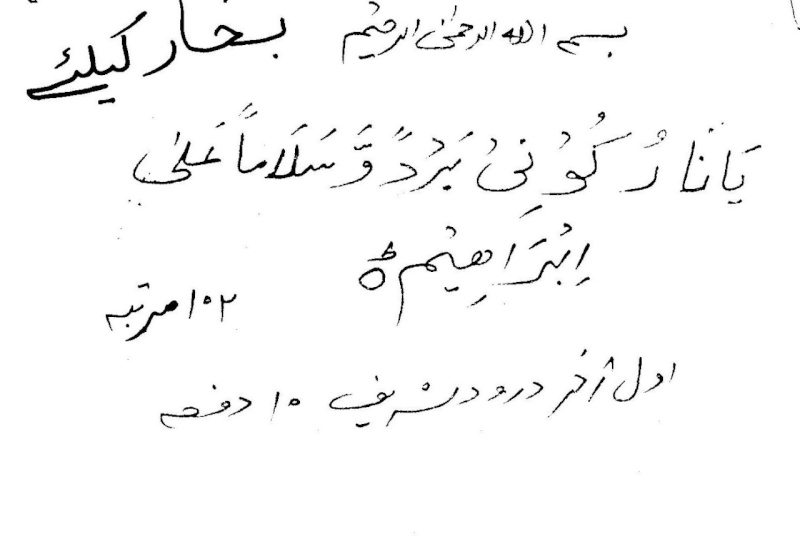 بسم اللہ الرحمٰن الرحیم بخار کیلئے
یَا نَارُ کُوْنِیْ بَرْدًا وَّ سَلَامًا عَلٰی
اِبْرَاهِیْم ط
۱۰۲ مرتبہ
اول آخر درود شریف ۱۰ دفعہ